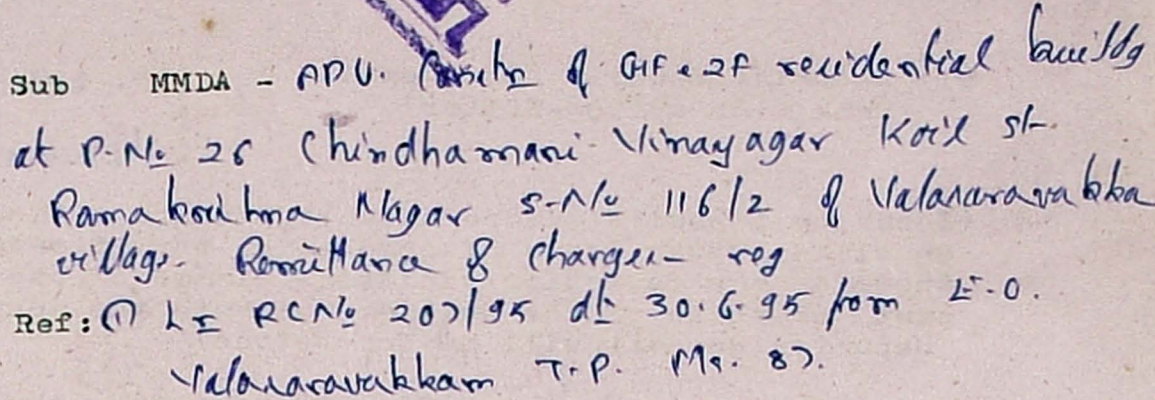 Sub MMDA - APU. Constn of GF+2F residential buildg
at P.No 26 Chindhamani Vinayagar Koil St-
Ramakrishna Nagar S-No 116/2 of Valasaravakka
village. Remittance of charges - reg
Ref: (1) Lr RC No 207/95 dt 30.6.95 from E.O.
Valasaravakkam T.P. Ms. 87.